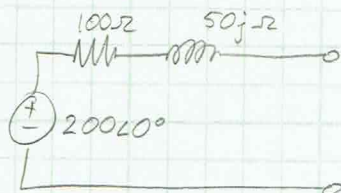 100Ω 50jΩ
+
200∠0°
-